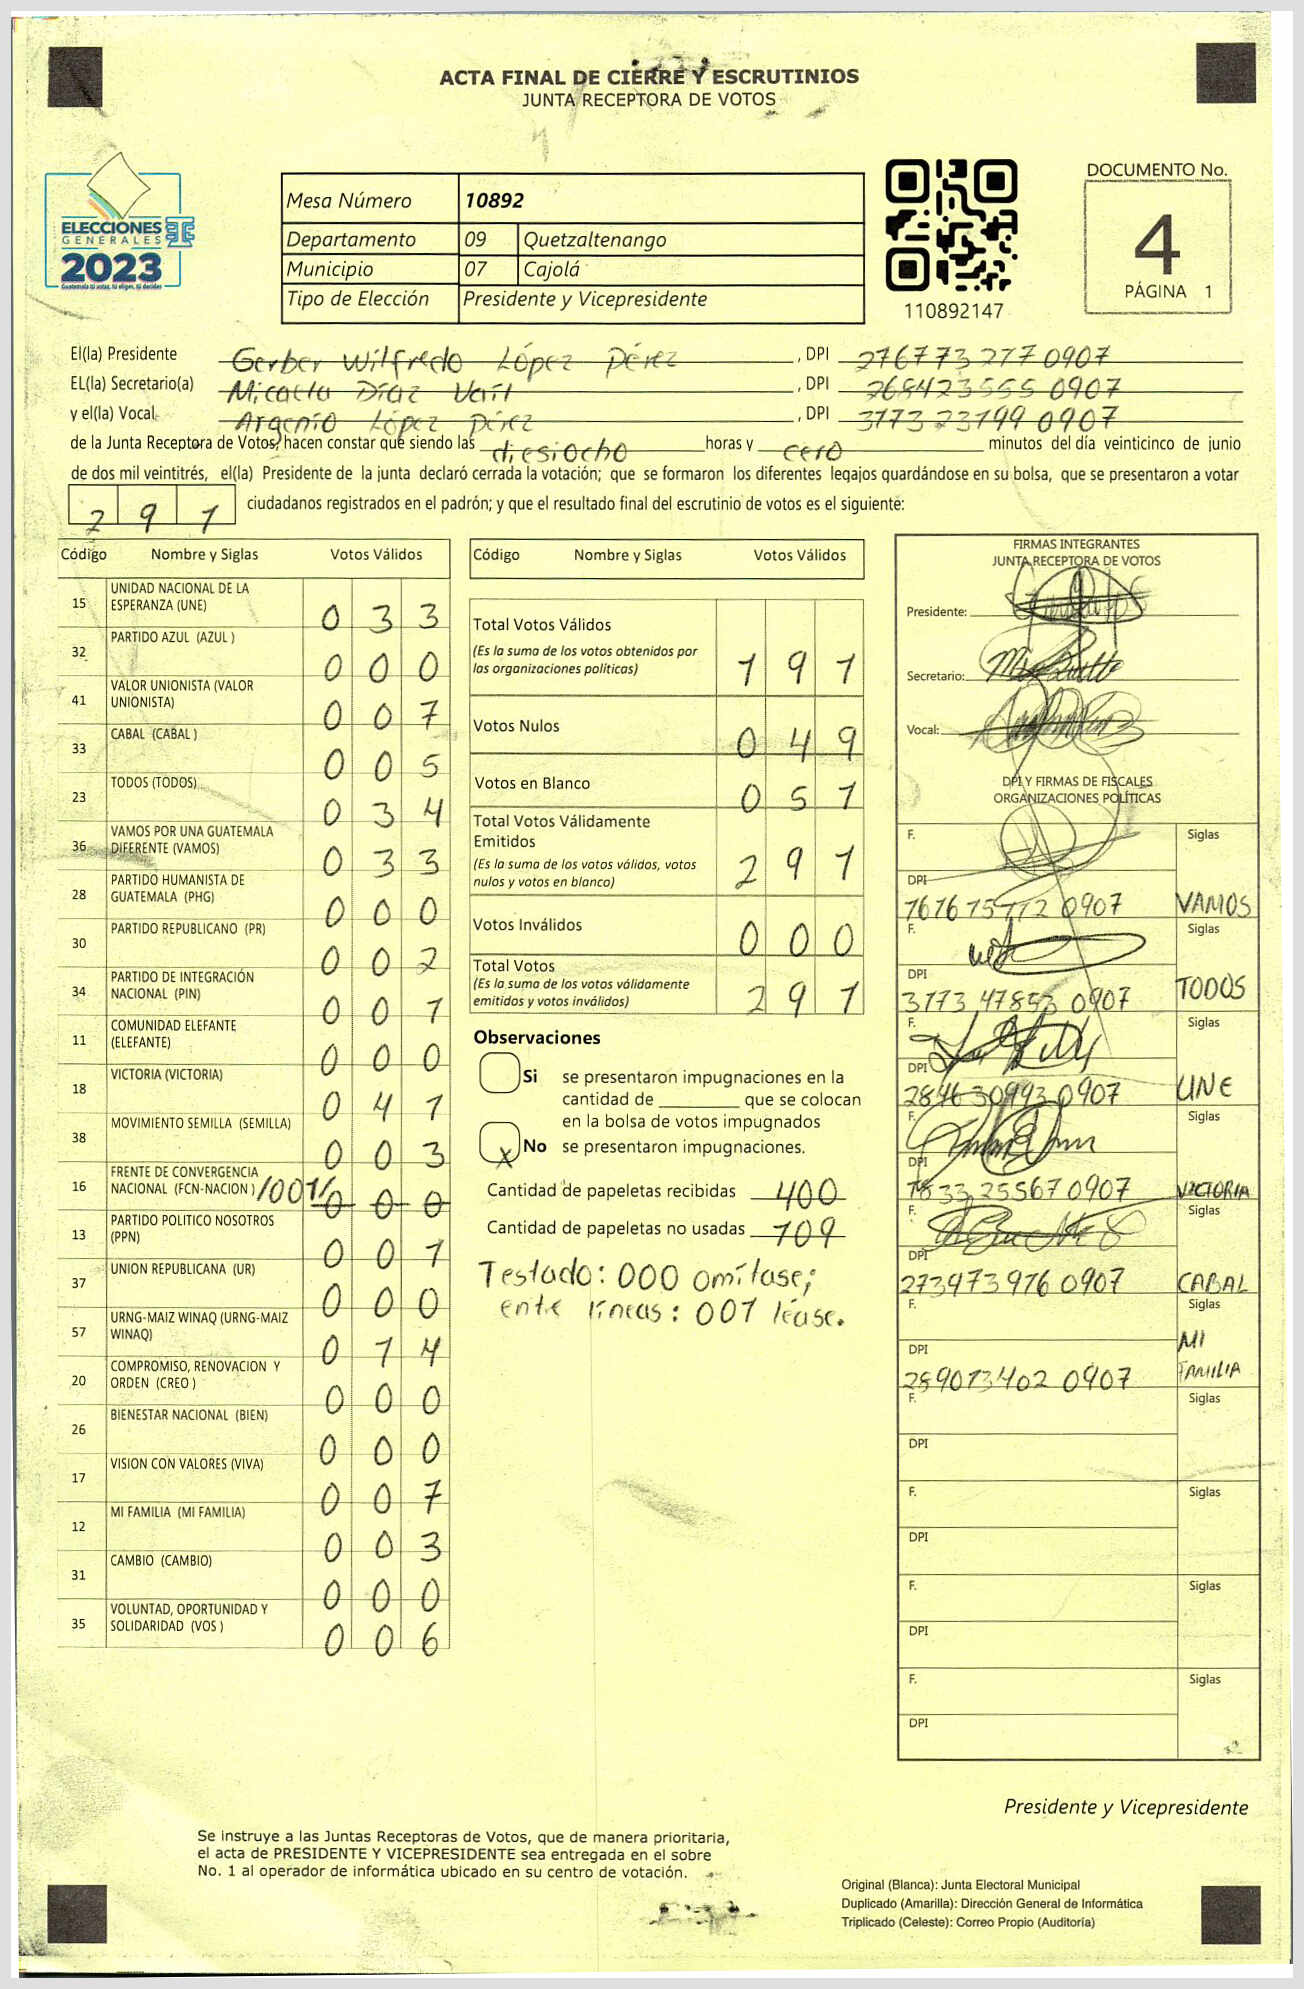 ACTA FINAL DE CIERRE Y ESCRUTINIOS
JUNTA RECEPTORA DE VOTOS
ELECCIONES
GENERALES
2023
Guatemala tú votas, tú eliges, tú decides
Mesa Número 10892
Departamento 09 Quetzaltenango
Municipio 07 Cajolá
Tipo de Elección Presidente y Vicepresidente
110892147
DOCUMENTO No.
4
PÁGINA 1
El(la) Presidente Gerber Wilfredo López Pérez , DPI 276773277 0907
EL(la) Secretario(a) Micaela Díaz Vaíl , DPI 268423555 0907
y el(la) Vocal Argenio López Pérez , DPI 3773 23199 0907
de la Junta Receptora de Votos, hacen constar que siendo las diesiocho horas y cero minutos del día veinticinco de junio
de dos mil veintitrés, el(la) Presidente de la junta declaró cerrada la votación; que se formaron los diferentes legajos guardándose en su bolsa, que se presentaron a votar
291 ciudadanos registrados en el padrón; y que el resultado final del escrutinio de votos es el siguiente:
Código Nombre y Siglas Votos Válidos
15 UNIDAD NACIONAL DE LA
ESPERANZA (UNE) 0 3 3
32 PARTIDO AZUL (AZUL ) 0 0 0
41 VALOR UNIONISTA (VALOR
UNIONISTA) 0 0 7
33 CABAL (CABAL ) 0 0 5
23 TODOS (TODOS) 0 3 4
36 VAMOS POR UNA GUATEMALA
DIFERENTE (VAMOS) 0 3 3
28 PARTIDO HUMANISTA DE
GUATEMALA (PHG) 0 0 0
30 PARTIDO REPUBLICANO (PR) 0 0 2
34 PARTIDO DE INTEGRACIÓN
NACIONAL (PIN) 0 0 1
11 COMUNIDAD ELEFANTE
(ELEFANTE) 0 0 0
18 VICTORIA (VICTORIA) 0 4 1
38 MOVIMIENTO SEMILLA (SEMILLA) 0 0 3
16 FRENTE DE CONVERGENCIA
NACIONAL (FCN-NACION ) /001/ 0 0 0
13 PARTIDO POLITICO NOSOTROS
(PPN) 0 0 1
37 UNION REPUBLICANA (UR) 0 0 0
57 URNG-MAIZ WINAQ (URNG-MAIZ
WINAQ) 0 1 4
20 COMPROMISO, RENOVACION Y
ORDEN (CREO ) 0 0 0
26 BIENESTAR NACIONAL (BIEN) 0 0 0
17 VISION CON VALORES (VIVA) 0 0 7
12 MI FAMILIA (MI FAMILIA) 0 0 3
31 CAMBIO (CAMBIO) 0 0 0
35 VOLUNTAD, OPORTUNIDAD Y
SOLIDARIDAD (VOS ) 0 0 6
Código Nombre y Siglas Votos Válidos
Total Votos Válidos
(Es la suma de los votos obtenidos por
las organizaciones políticas) 1 9 1
Votos Nulos 0 4 9
Votos en Blanco 0 5 1
Total Votos Válidamente
Emitidos
(Es la suma de los votos válidos, votos
nulos y votos en blanco) 2 9 1
Votos Inválidos 0 0 0
Total Votos
(Es la suma de los votos válidamente
emitidos y votos inválidos) 2 9 1
Observaciones
Si se presentaron impugnaciones en la
cantidad de ________ que se colocan
en la bolsa de votos impugnados
X No se presentaron impugnaciones.
Cantidad de papeletas recibidas 400
Cantidad de papeletas no usadas 109
Testado: 000 omítase;
entre líneas: 001 léase.
FIRMAS INTEGRANTES
JUNTA RECEPTORA DE VOTOS
Presidente:
Secretario:
Vocal:
DPI Y FIRMAS DE FISCALES
ORGANIZACIONES POLÍTICAS
F. Siglas
DPI
0907 VAMOS
F. Siglas
DPI
3173 47853 0907 TODOS
F. Siglas
DPI
2846 30993 0907 UNE
F. Siglas
DPI
1833 25567 0907 VICTORIA
F. Siglas
DPI
273973976 0907 CABAL
F. Siglas
MI
DPI
289013402 0907 FAMILIA
F. Siglas
DPI
F. Siglas
DPI
F. Siglas
DPI
F. Siglas
DPI
Presidente y Vicepresidente
Se instruye a las Juntas Receptoras de Votos, que de manera prioritaria,
el acta de PRESIDENTE Y VICEPRESIDENTE sea entregada en el sobre
No. 1 al operador de informática ubicado en su centro de votación.
Original (Blanca): Junta Electoral Municipal
Duplicado (Amarilla): Dirección General de Informática
Triplicado (Celeste): Correo Propio (Auditoría)